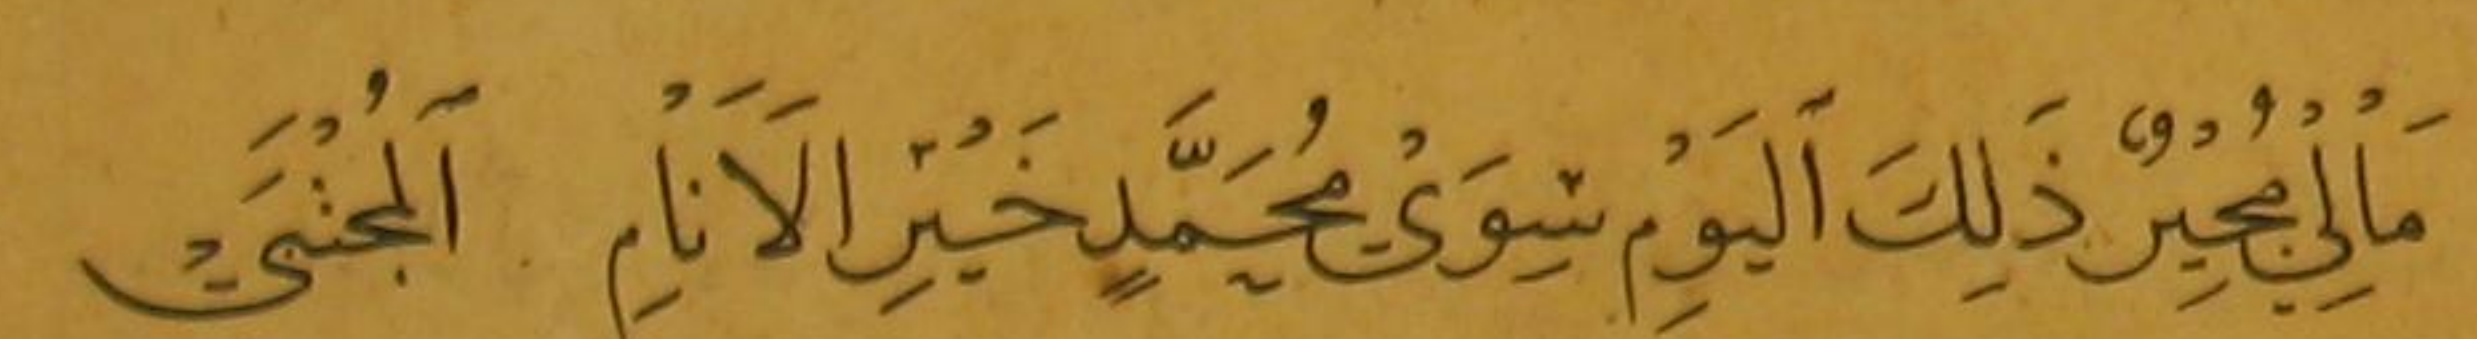 مَالِيْ مُجِيْرٌ ذَلِكَ اَلْيَوْمِ سِوَىْ مُحَمَّدٍ خَيْرِ الَانَامِ اَلْمُجْتَبَىْ